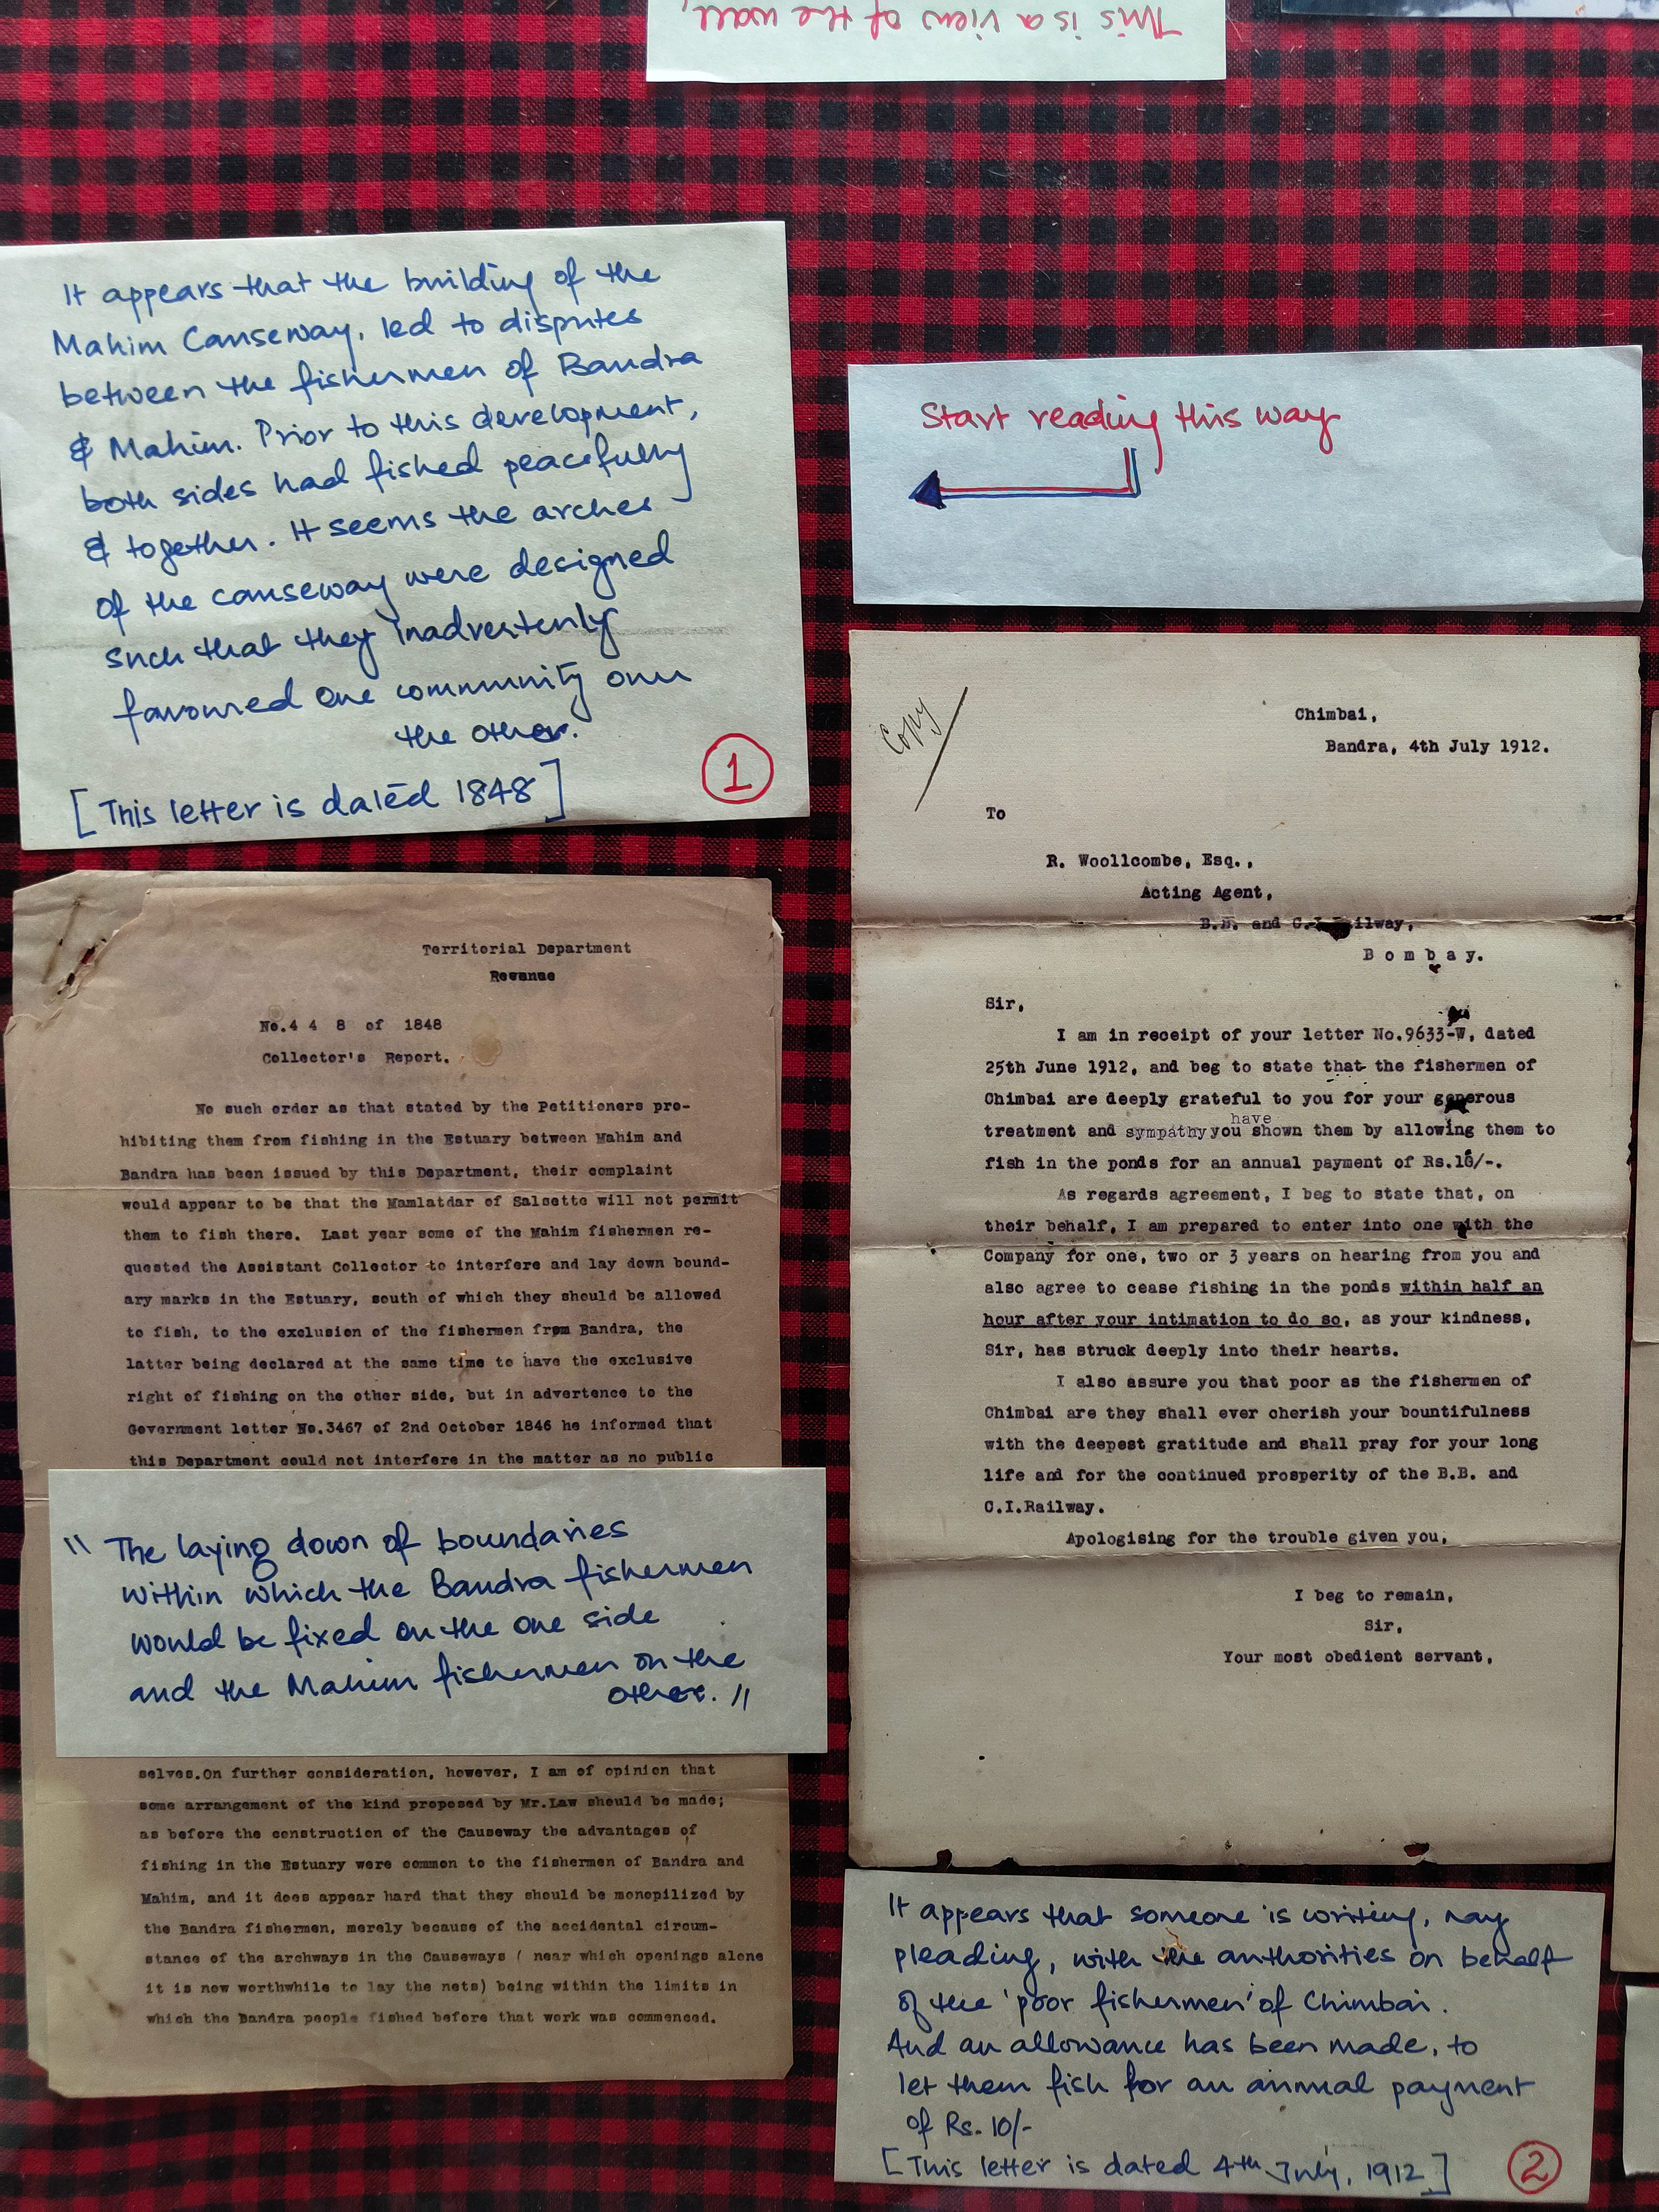 This is a view of the wall,
It appears that the building of the
Mahim Causeway, led to disputes
between the fishermen of Bandra
& Mahim. Prior to this development,
both sides had fished peacefully
& together. It seems the arches
of the causeway were designed
such that they inadvertently
favoured one community over
the other.
[This letter is dated 1848]
1
Territorial Department
Revenue
No.4 4 8 of 1848
Collector's Report.
No such order as that stated by the Petitioners pro-
hibiting them from fishing in the Estuary between Mahim and
Bandra has been issued by this Department, their complaint
would appear to be that the Mamlatdar of Salsette will not permit
them to fish there. Last year some of the Mahim fishermen re-
quested the Assistant Collector to interfere and lay down bound-
ary marks in the Estuary, south of which they should be allowed
to fish, to the exclusion of the fishermen from Bandra, the
latter being declared at the same time to have the exclusive
right of fishing on the other side, but in advertence to the
Government letter No.3467 of 2nd October 1846 he informed that
this Department could not interfere in the matter as no public
" The laying down of boundaries
within which the Bandra fishermen
would be fixed on the one side
and the Mahim fishermen on the
other. "
selves.On further consideration, however, I am of opinion that
some arrangement of the kind proposed by Mr.Law should be made;
as before the construction of the Causeway the advantages of
fishing in the Estuary were common to the fishermen of Bandra and
Mahim, and it does appear hard that they should be monopilized by
the Bandra fishermen, merely because of the accidental circum-
stance of the archways in the Causeways ( near which openings alone
it is now worthwhile to lay the nets) being within the limits in
which the Bandra people fished before that work was commenced.
Start reading this way
Copy
Chimbai,
Bandra, 4th July 1912.
To
R. Woollcombe, Esq.,
Acting Agent,
B.B. and C.I.Railway,
B o m b a y.
Sir,
I am in receipt of your letter No.9633-W, dated
25th June 1912, and beg to state that the fishermen of
Chimbai are deeply grateful to you for your generous
treatment and sympathy you have shown them by allowing them to
fish in the ponds for an annual payment of
As regards agreement, I beg to state that, on
their behalf, I am prepared to enter into one with the
Company for one, two or 3 years on hearing from you and
also agree to cease fishing in the ponds within half an
hour after your intimation to do so, as your kindness,
Sir, has struck deeply into their hearts.
I also assure you that poor as the fishermen of
Chimbai are they shall ever cherish your bountifulness
with the deepest gratitude and shall pray for your long
life and for the continued prosperity of the B.B. and
C.I.Railway.
Apologising for the trouble given you,
I beg to remain,
Sir,
Your most obedient servant,
It appears that someone is writing, nay
pleading, with the authorities on behalf
of the 'poor fishermen' of Chimbai.
And an allowance has been made, to
let them fish for an annual payment
of Rs. 10/-
[This letter is dated 4th July, 1912]
2